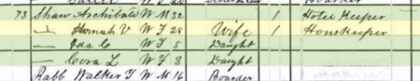 73 Shaw Archibald W M 32 1 Hotel Keeper
— Hannah V W F 28 Wife 1 Housekeeper
— Eda C W F 5 Daught
— Cora L W F 3 Daught
Rabb Walker T W M 16 Boarder